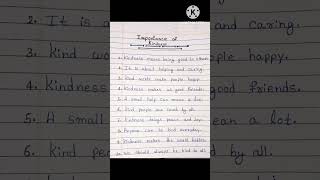 Importance of
Kindness
1. Kindness means being good to others.
2. It is about helping and caring.
3. Kind words make people happy.
4. Kindness makes us good friends.
5. A small help can mean a lot.
6. Kind people are loved by all.
7. Kindness brings peace and joy.
8. Anyone can be kind everyday.
9. Kindness makes the world better.
10. We should always be kind to all.
2. It is a
and caring.
3. Kind wo
people happy.
4. Kindness
good friends.
5. A small
ean a lot.
6. Kind pe
by all.